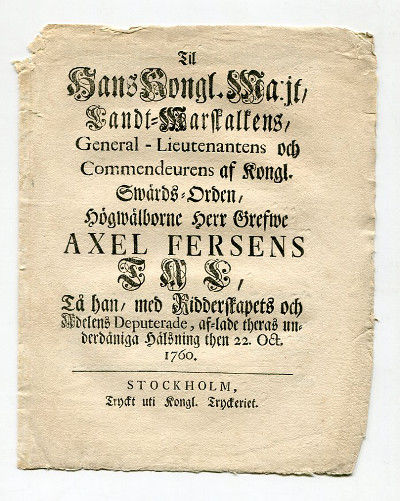 Til
Hans Kongl. Maj:t,
Landt-Marskalkens,
General-Lieutenantens och
Commendeurens af Kongl.
Swärds-Orden,
Högwälborne Herr Grefwe
AXEL FERSENS
TAL,
Tå han, med Ridderskapets och
Adelens Deputerade, af-lade theras un-
derdåniga Hälsning then 22. Oct.
1760.
STOCKHOLM,
Tryckt uti Kongl. Tryckeriet.